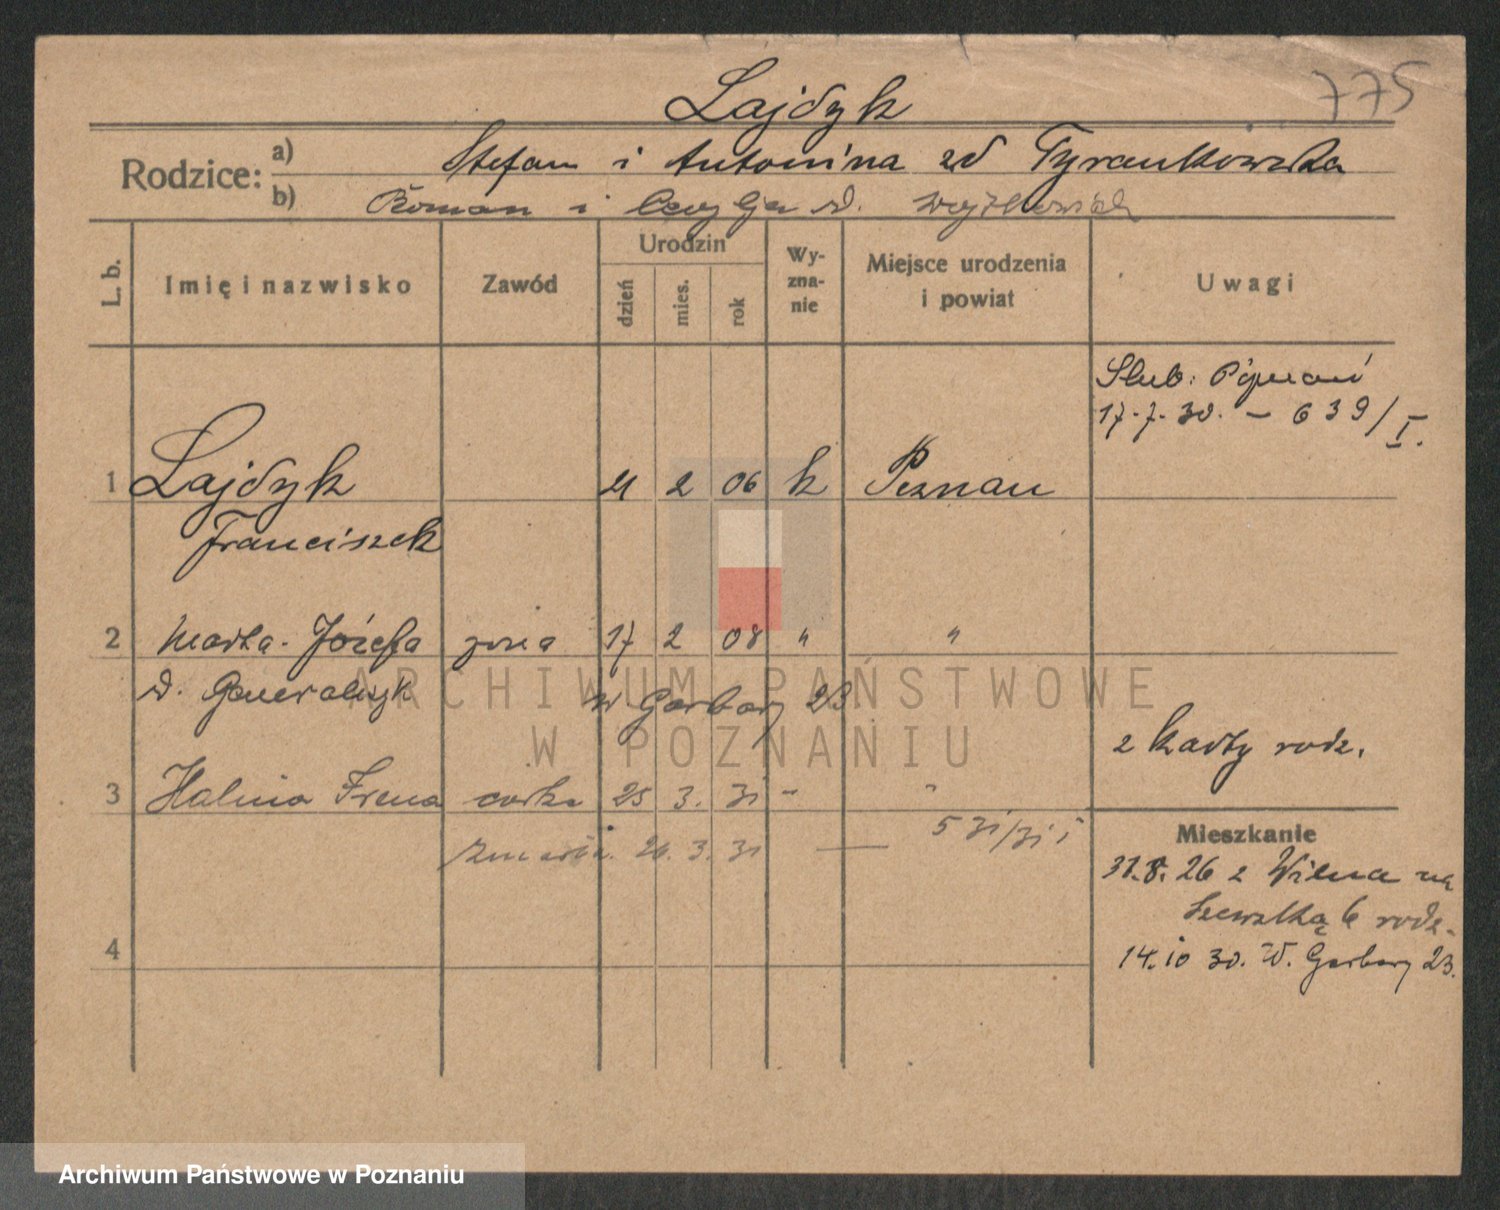 775
Lajdyk
Rodzice: a) Stefan i Antonina zd Tyrankowska
b) Roman i Cecylja d.
L. b. Imię i nazwisko Zawód Urodzin dzień mies. rok Wyznanie Miejsce urodzenia i powiat Uwagi
Slub: Poznań
17.7.30. – 639/I.
1 Lajdyk 21 2 06 k Poznań
Franciszek
2 Marta-Józefa żona 17 2 08 " "
d. Generalczyk W Garbary 23
z karty rodz.
3 Halina Irena córka 25 3. 31 " "
Mieszkanie
zmarła. 26. 3. 31 — 531/31 i
31.8.26 z Wilna na
Szewską 6 rodz.
4
14.10 30. W. Garbary 23.
ARCHIWUM PAŃSTWOWE
W POZNANIU
Archiwum Państwowe w Poznaniu